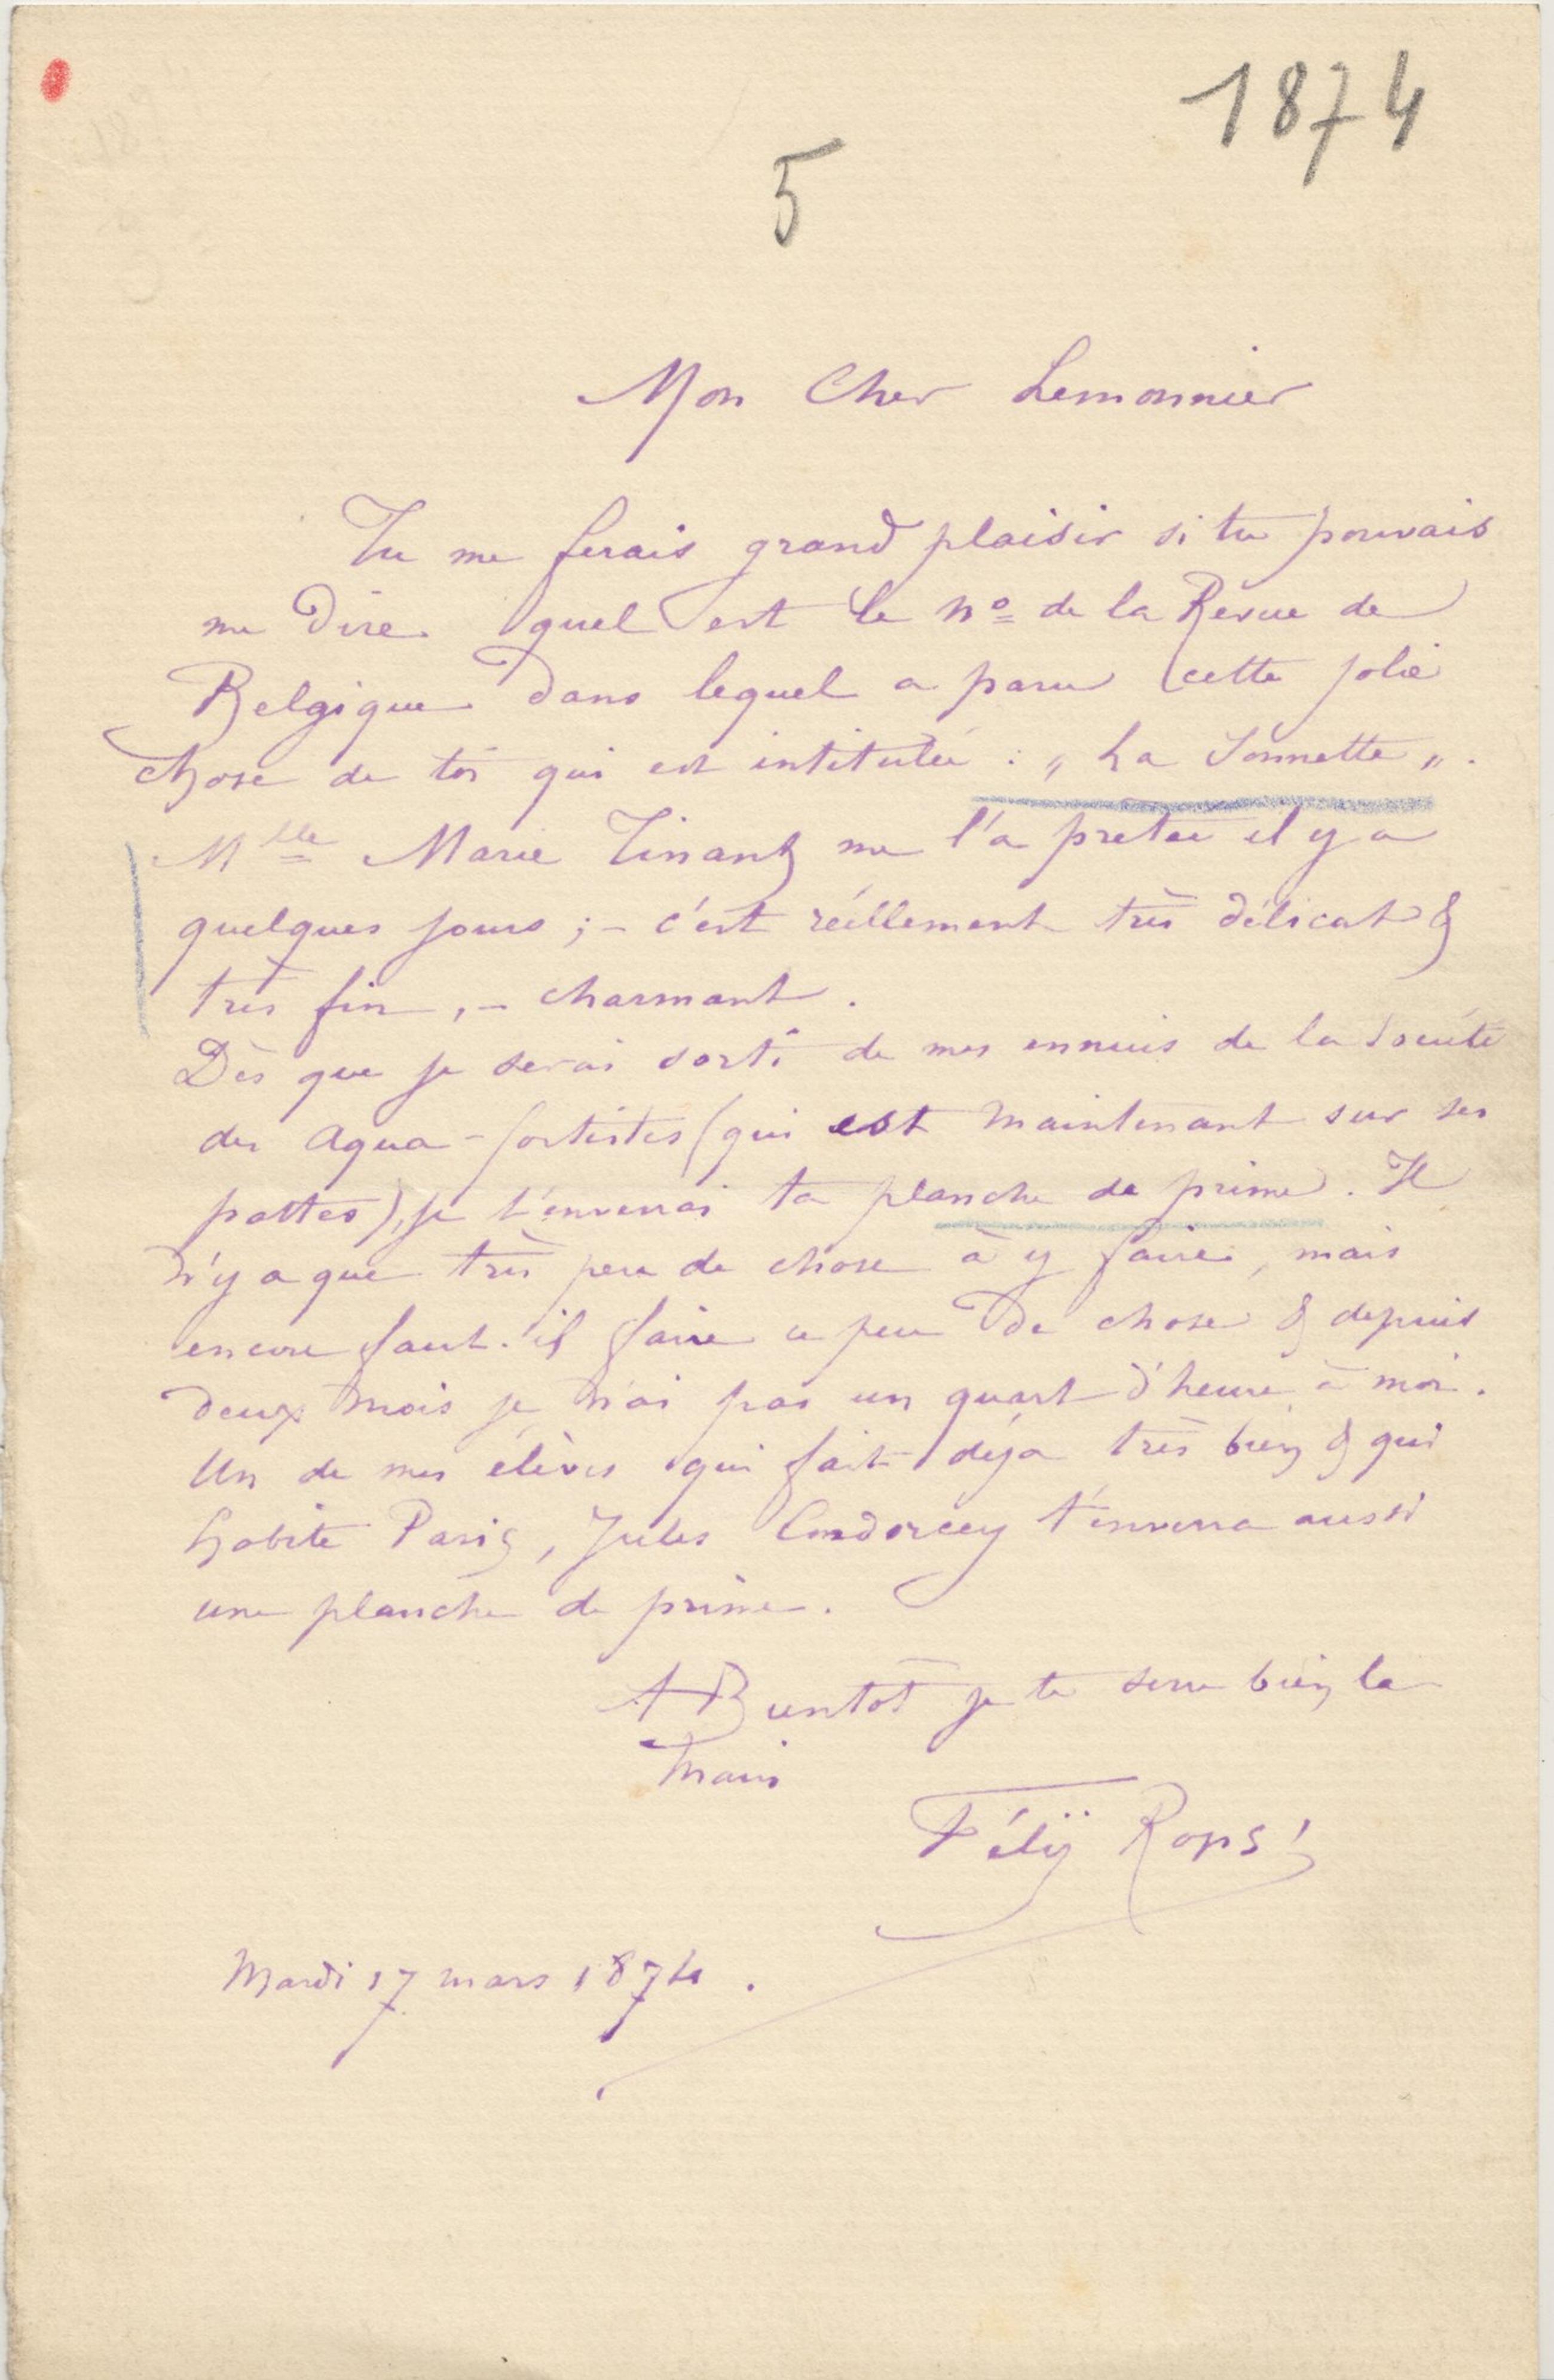 1874
5
Mon Cher Lemonnier
Tu me ferais grand plaisir si tu pouvais
me dire quel est le no de la Revue de
Belgique dans lequel a paru cette jolie
chose de toi qui est intitulée : „ La Sonnette „ .
Mlle Marie Tinant me l'a pretée il y a
quelques jours ; – c'est réellement très délicat &
très fin , – charmant .
Dès que je serai sorti de mes ennuis de la Société
des Aqua-fortistes (qui est maintenant sur ses
pattes), je t'enverrai ta planche de prime . Il
n'y a que très peu de chose à y faire, mais
encore faut-il faire ce peu de chose & depuis
deux mois je n'ai pas un quart d'heure à moi .
Un de mes élèves qui fait déja très bien & qui
habite Paris, Jules Condorcey t'enverra aussi
une planche de prime .
A Bientôt je te serre bien la
main
Félÿ Rops
Mardi 17 mars 1874 .